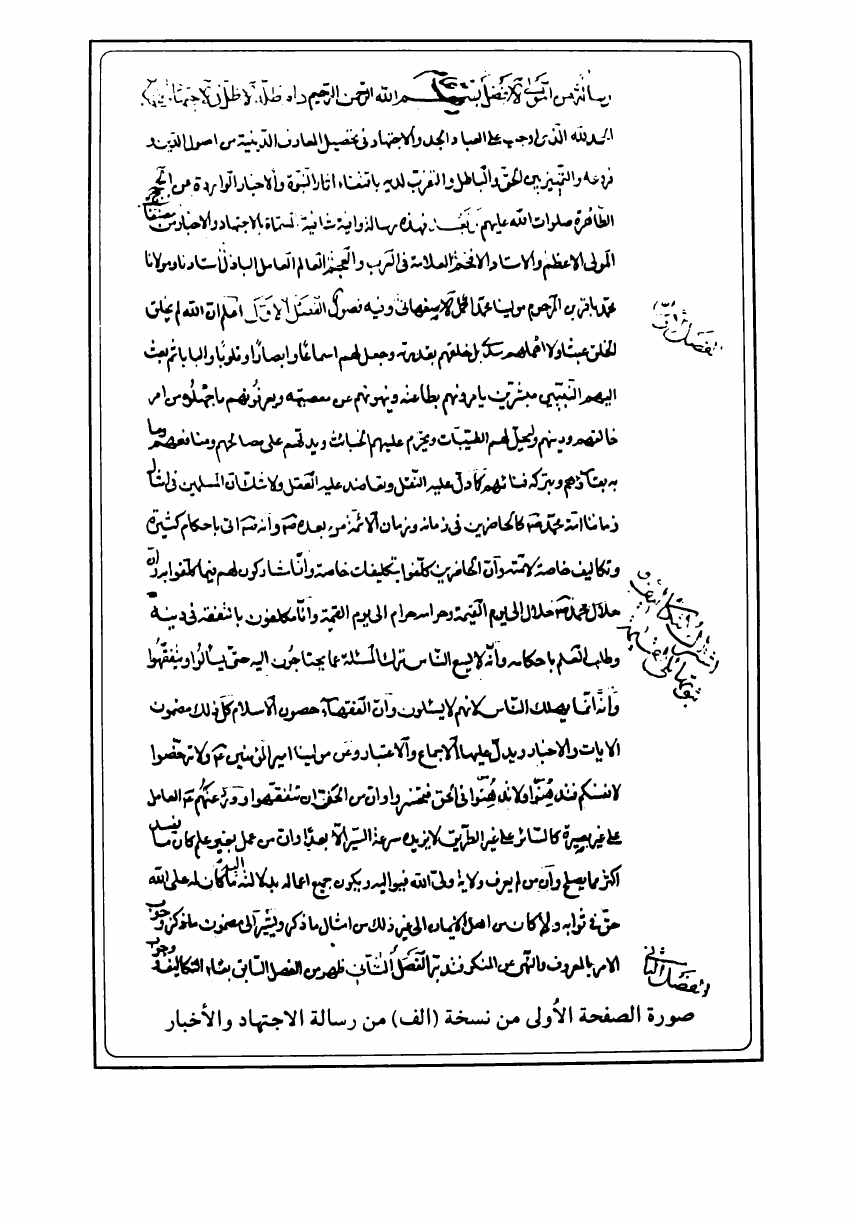 بسم الله الرحمن الرحيم
الحمد لله الذي اوجب على العباد الجد والاجتهاد في تحصيل المعارف الدينية من اصول الدين و
فروعه والتمييز بين الحق والباطل والتقرب لديه باقتفاء اثار النبوة والاخبار الواردة من
الطاهرة صلوات الله عليهم فهذه رسالة بالاجتهاد والاخبار من
المولى الاعظم والاستاد الافخم العلامة في العرب والعجم العالم العامل الباذل استادنا ومولانا
محمد باقر بن المرحوم مولينا محمد اكمل الاصفهاني وفيه فصول الفصل الاول اعلم ان الله لم يخلق
الخلق عبثا ولا اهملهم سدى بل خلقهم بقدرته وجعل لهم اسماعا وابصارا وقلوبا والبابا ثم بعث
اليهم النبيين مبشرين يامرونهم بطاعته وينهونهم عن معصيته ويعرفونهم ما جهلوه من امر
خالقهم ودينهم وليحل لهم الطيبات ويحرم عليهم الخبائث ويدلهم على مصالحهم ومنافعهم وما
به بقاؤهم وبتركه فناؤهم كما دل عليه النقل وتعاضد عليه العقل ولا شك ان المسلمين في امثال
زماننا امة محمد ص كالحاضرين في زمانه وزمان الائمة من بعده ص وانه ص اتى باحكام كثيرة
وتكاليف خاصة لا تنسوا ان الحاضرين كلفوا بتكليفات خاصة وانا مشاركون لهم فيما كلفوا به وان
حلال محمد ص حلال الى يوم القيمة وحرامه حرام الى يوم القيمة وانا مكلفون بالتفقه في دينه
وطلب العلم باحكامه وانه لا يسع الناس ترك المسئلة عما يحتاجون اليه حتى يسألوا ويتفقهوا
وانه انما يهلك الناس لانهم لا يسئلون وان الفقهاء حصون الاسلام كل ذلك مضمون
الايات والاخبار ويدل عليها الاجماع والاعتبار وعن مولينا امير المؤمنين ع ولا ترخصوا
لانفسكم فتدهنوا ولا تدهنوا في الحق فتخسروا وان من الحق ان تتفقهوا وورد عنهم ع العامل
على غير بصيرة كالسائر على غير الطريق لا يزيده سرعة السير الا بعدا وان من عمل بغير علم كان ما يفسد
اكثر مما يصلح وان من لم يعرف ولاية ولي الله فيواليه ويكون جميع اعماله بدلالته اليه ما كان له على الله
حق في ثوابه ولا كان من اهل الايمان الى غير ذلك من امثال ما ذكر ويشير الى مضمون ما ذكر وجوب
الامر بالمعروف والنهي عن المنكر فتدبر الفصل الثاني ظهر من الفصل السابق بقاء التكاليف وجوب
الفصل الاول
اشتراك التكاليف
الفصل الثاني
صورة الصفحة الأولى من نسخة (الف) من رسالة الاجتهاد والأخبار